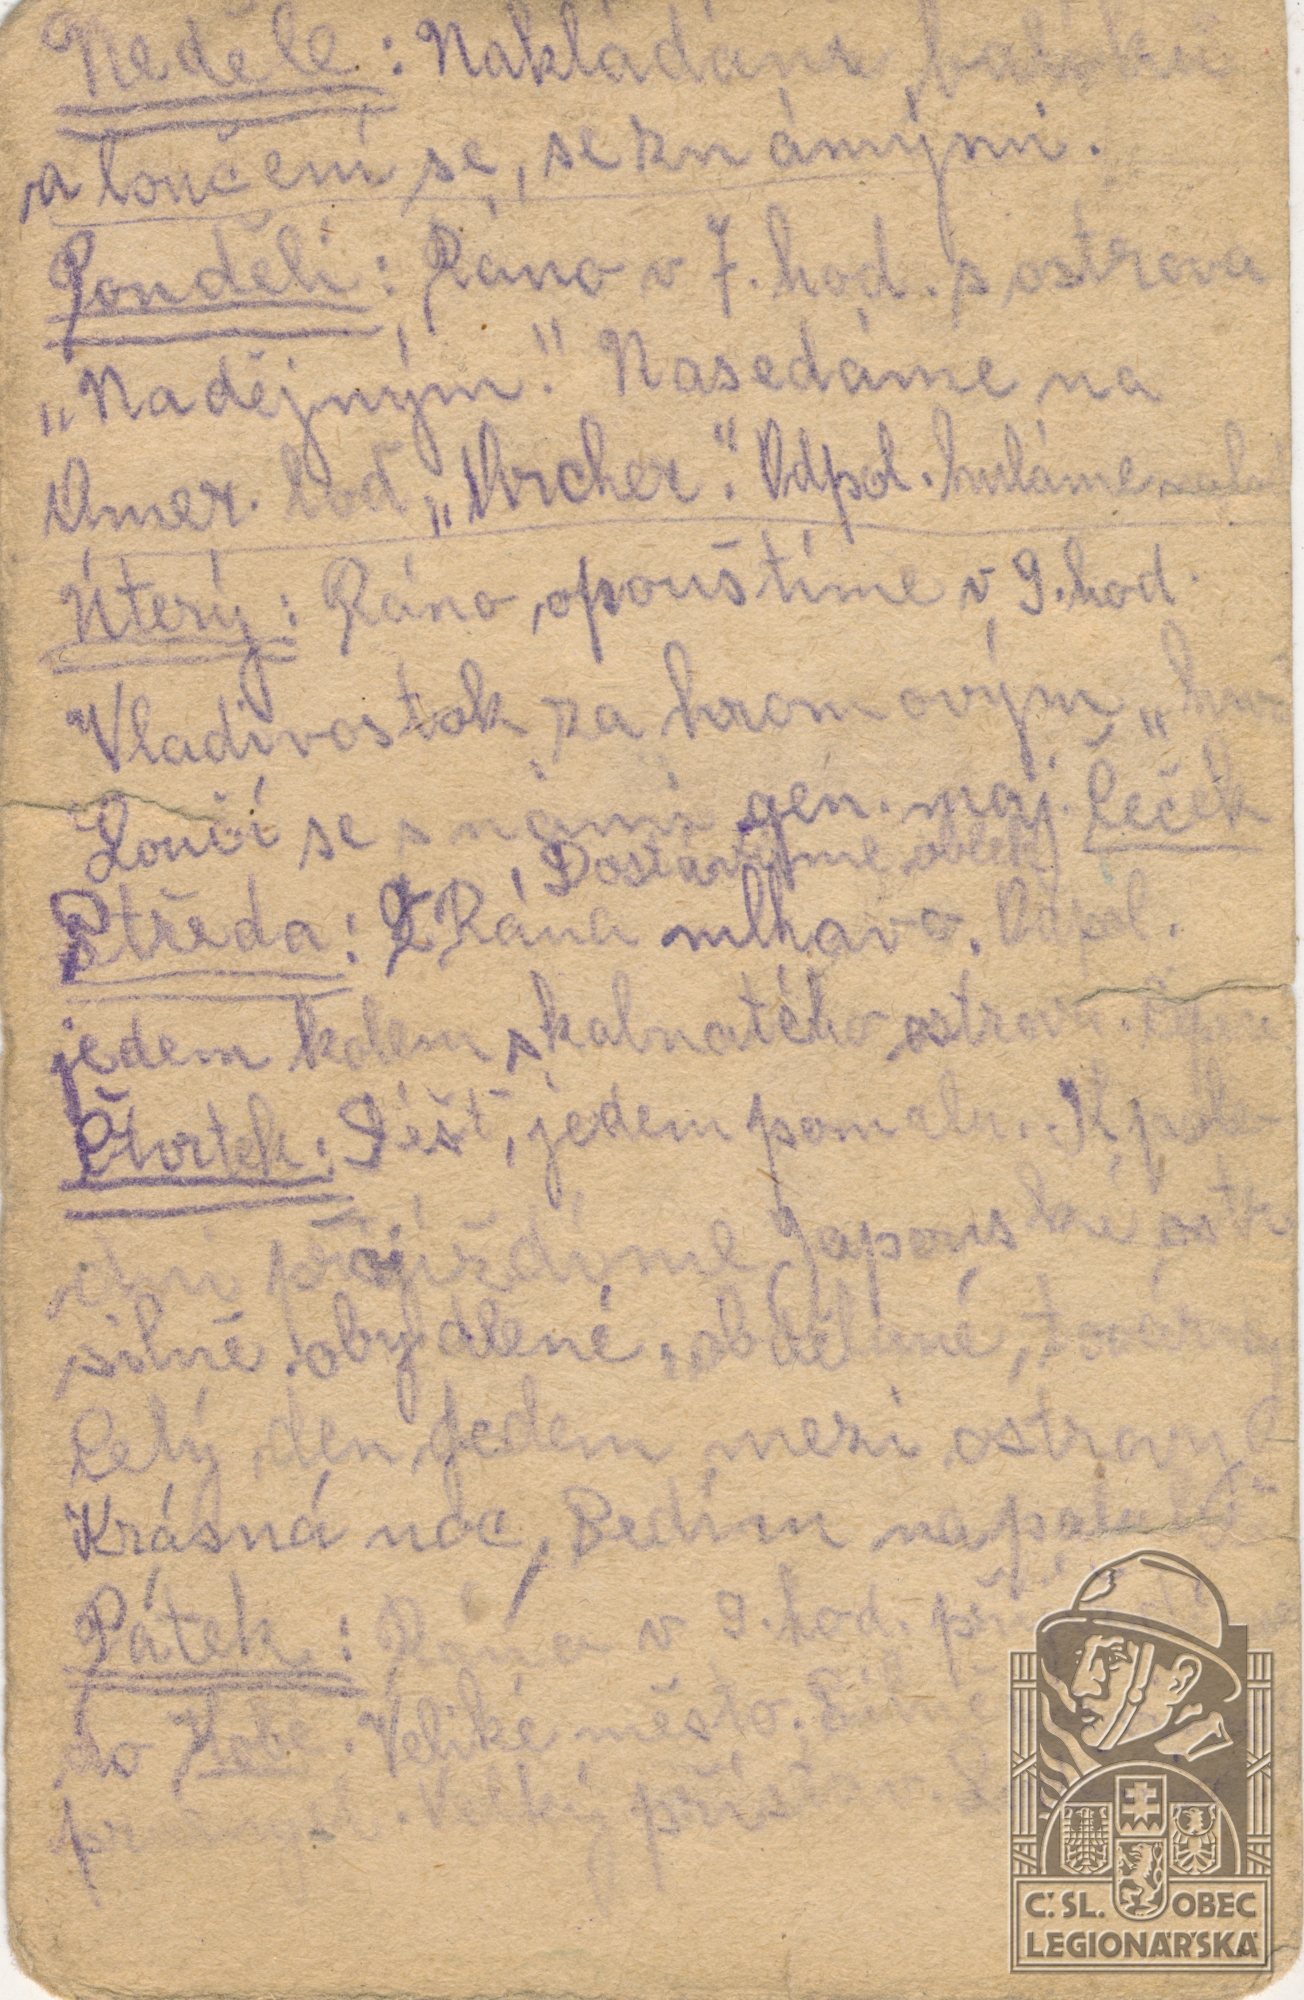 Neděle: Nakládání
a loučení se, se známými.
Pondělí: Ráno v 7. hod. s ostrova
„Nadějným." Nasedáme na
Amer. loď „Archer". Odpol.
Úterý: Ráno opouštíme v 9. hod.
Vladivostok za hromovým „
Loučí se s námi gen. maj. Čeček
Dostáváme oblek
Středa: Z Rána mlhavo. Odpol.
jedem kolem skalnatého ostrova.
Čtvrtek: Déšť, jedem pomalu. K pole-
dni přijíždíme Japonské ostr.
silně obydlené, vzdělané, továrny
Celý den jedem mezi ostrovy
Krásná noc, Sedím na palubě
Pátek: Ráno v 9. hod.
do Kobe. Veliké město. Silně
Velký přístav.
Č. SL. OBEC
LEGIONÁŘSKÁ